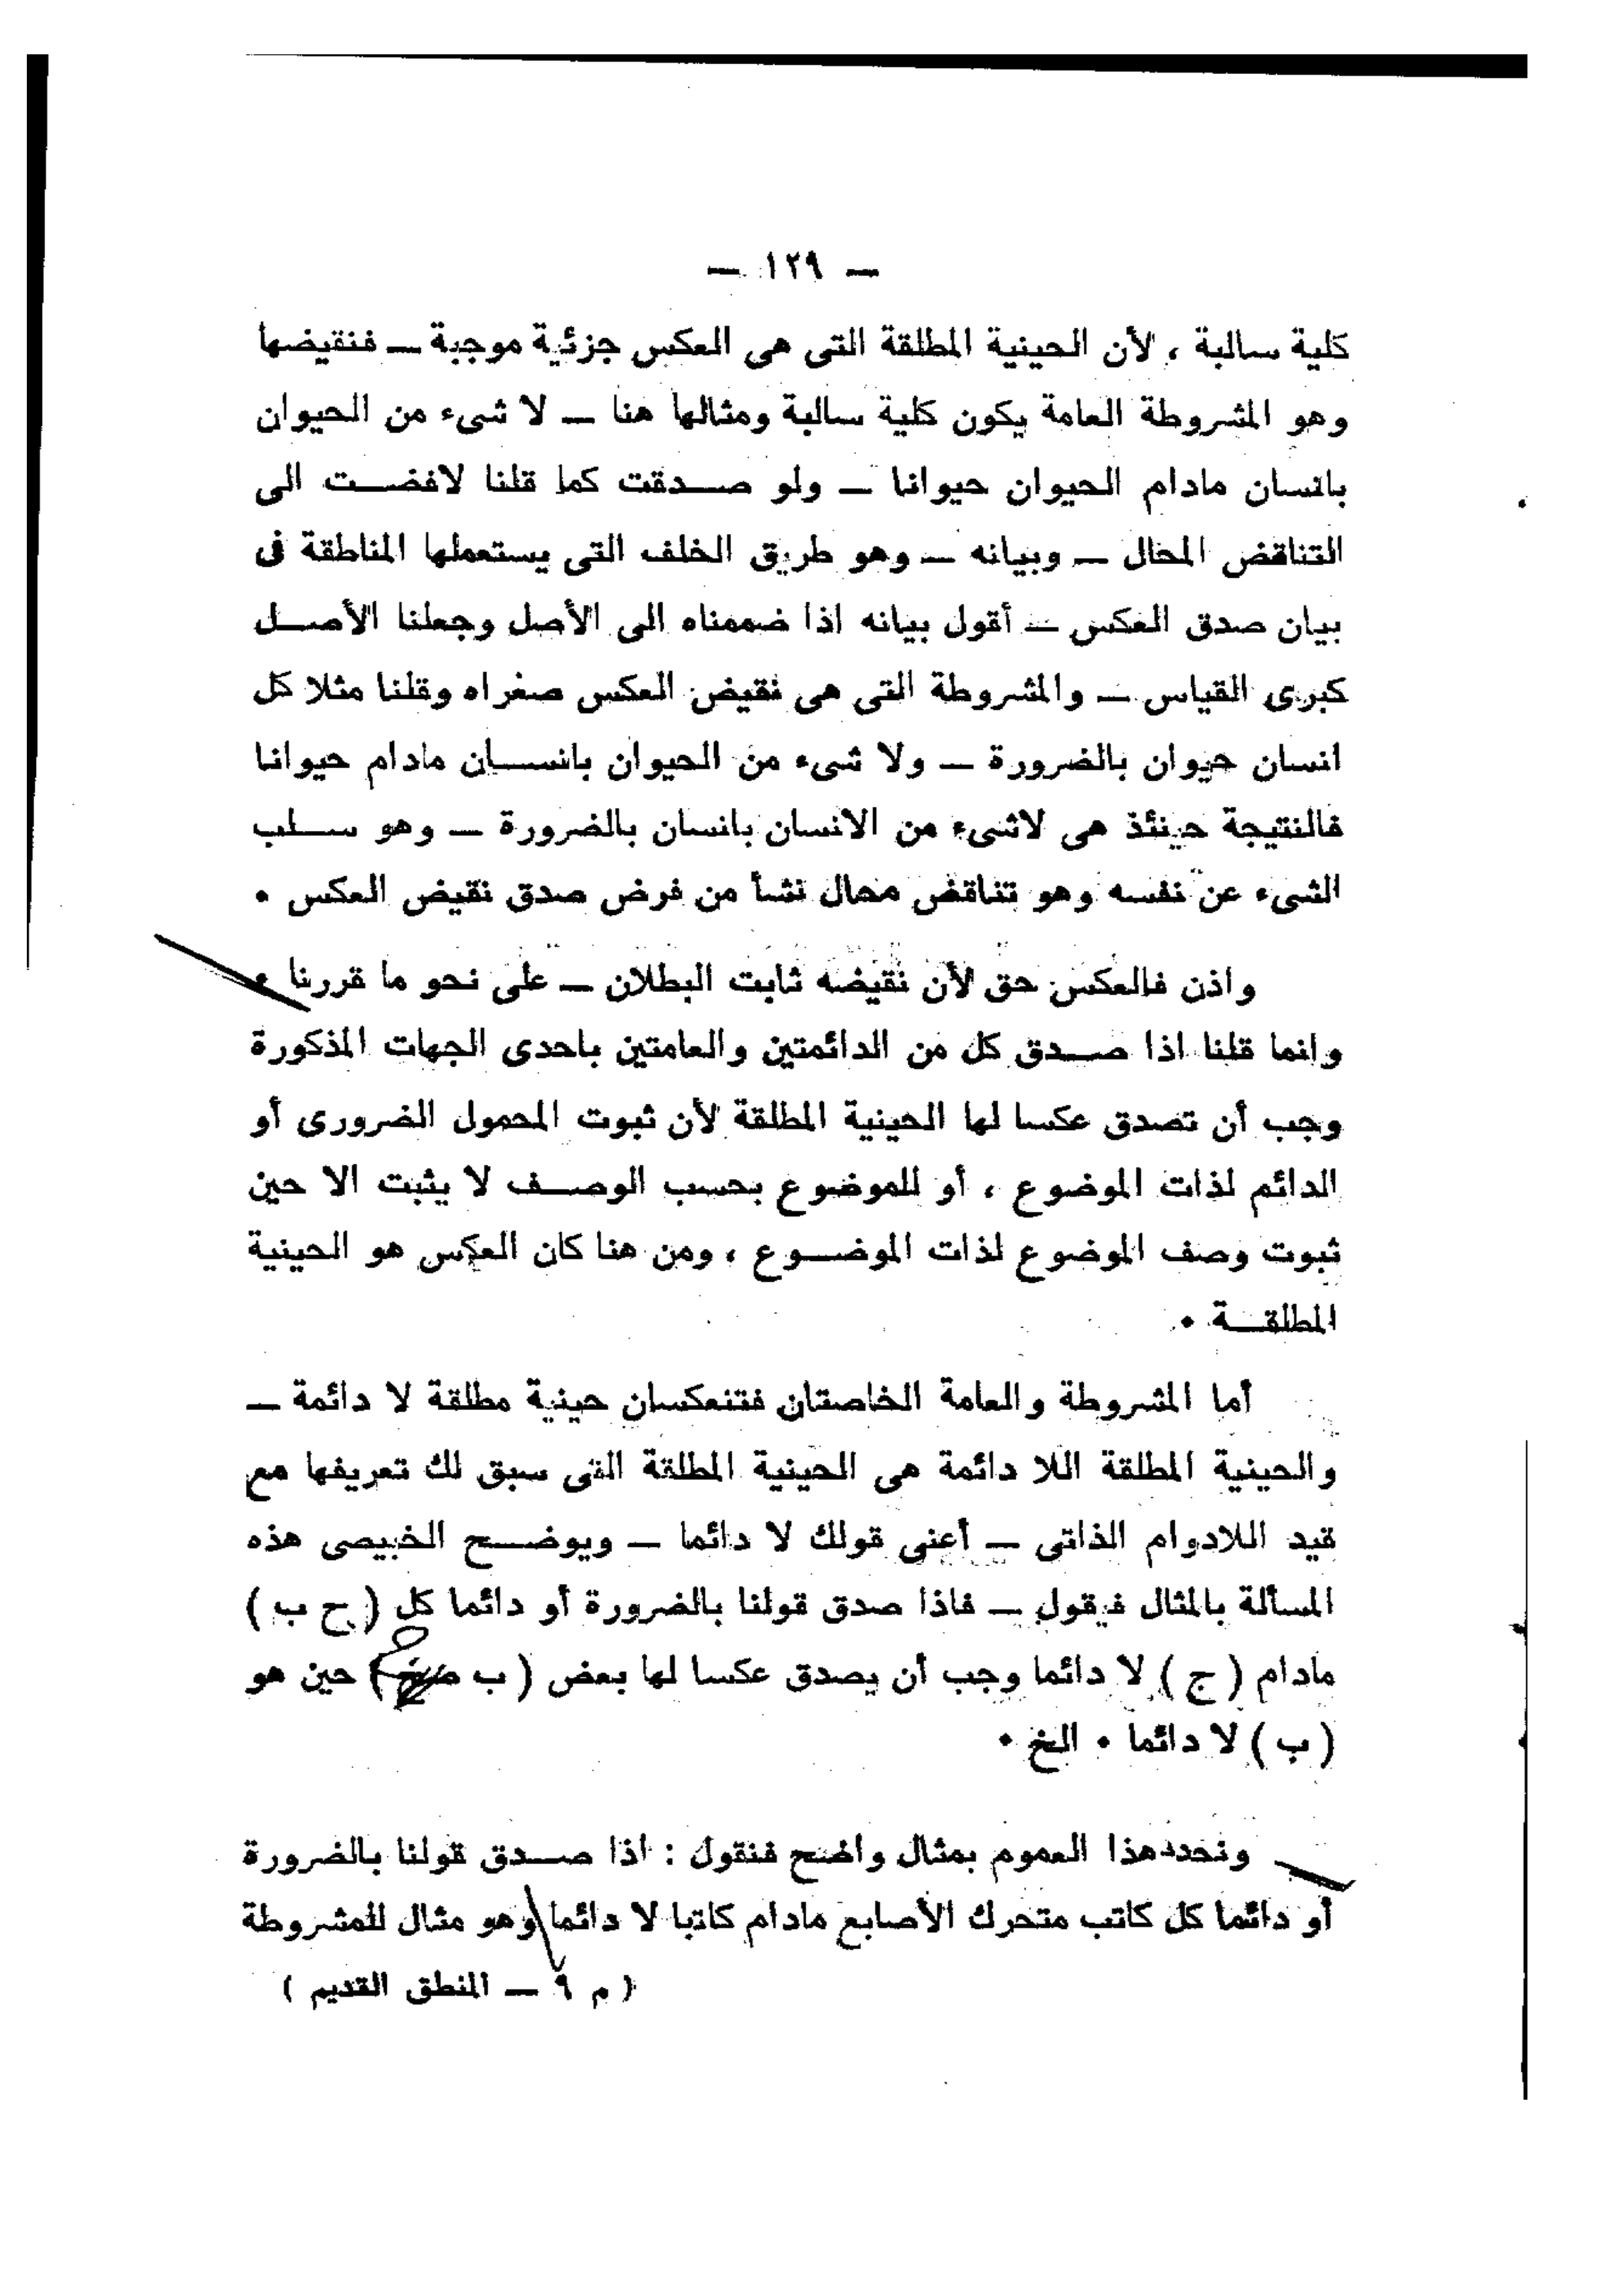 — ١٢٩ —
كلية سالبة ، لأن الحينية المطلقة التى هى العكس جزئية موجبة — فنقيضها
وهو المشروطة العامة يكون كلية سالبة ومثالها هنا — لا شىء من الحيوان
بانسان مادام الحيوان حيوانا — ولو صدقت كما قلنا لافضت الى
التناقض المحال — وبيانه — وهو طريق الخلف التى يستعملها المناطقة فى
بيان صدق العكس — أقول بيانه اذا ضممناه الى الأصل وجعلنا الأصل
كبرى القياس — والمشروطة التى هى نقيض العكس صغراه وقلنا مثلا كل
انسان حيوان بالضرورة — ولا شىء من الحيوان بانسان مادام حيوانا
فالنتيجة حينئذ هى لاشىء من الانسان بانسان بالضرورة — وهو سلب
الشىء عن نفسه وهو تناقض محال نشأ من فرض صدق نقيض العكس ٠
واذن فالعكس حق لأن نقيضه ثابت البطلان — على نحو ما قررنا ٠
وانما قلنا اذا صدق كل من الدائمتين والعامتين باحدى الجهات المذكورة
وجب أن تصدق عكسا لها الحينية المطلقة لأن ثبوت المحمول الضرورى أو
الدائم لذات الموضوع ، أو للموضوع بحسب الوصف لا يثبت الا حين
ثبوت وصف الموضوع لذات الموضوع ، ومن هنا كان العكس هو الحينية
المطلقة ٠
أما المشروطة والعامة الخاصتان فتنعكسان حينية مطلقة لا دائمة —
والحينية المطلقة اللا دائمة هى الحينية المطلقة التى سبق لك تعريفها مع
قيد اللادوام الذاتى — أعنى قولك لا دائما — ويوضح الخبيصى هذه
المسألة بالمثال فيقول — فاذا صدق قولنا بالضرورة أو دائما كل ( ج ب )
مادام ( ج ) لا دائما وجب أن يصدق عكسا لها بعض ( ب ) حين هو
( ب ) لا دائما ٠ الخ ٠
ونحدد هذا العموم بمثال واضح فنقول : اذا صدق قولنا بالضرورة
أو دائما كل كاتب متحرك الأصابع مادام كاتبا لا دائما وهو مثال للمشروطة
( م ٩ — المنطق القديم )